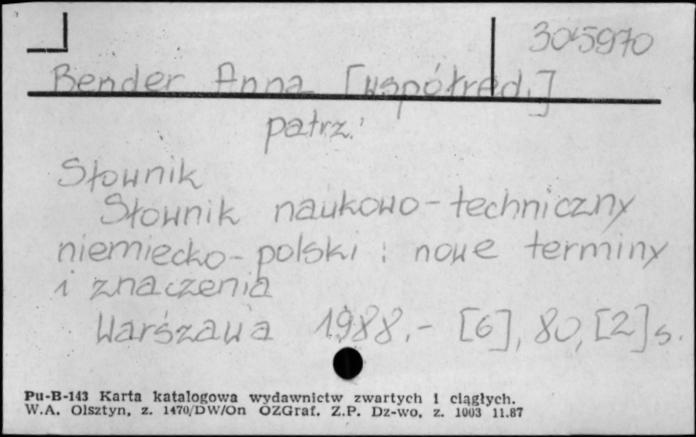 305970
Bender Anna [współred.]
patrz:
Słownik
Słownik naukowo-techniczny
niemiecko-polski : nowe terminy
i znaczenia
Warszawa 1988.- [6], 80, [2] s.
Pu-B-143 Karta katalogowa wydawnictw zwartych i ciągłych.
W.A. Olsztyn, z. 1470/DW/On OZGraf. Z.P. Dz-wo, z. 1003 11.87